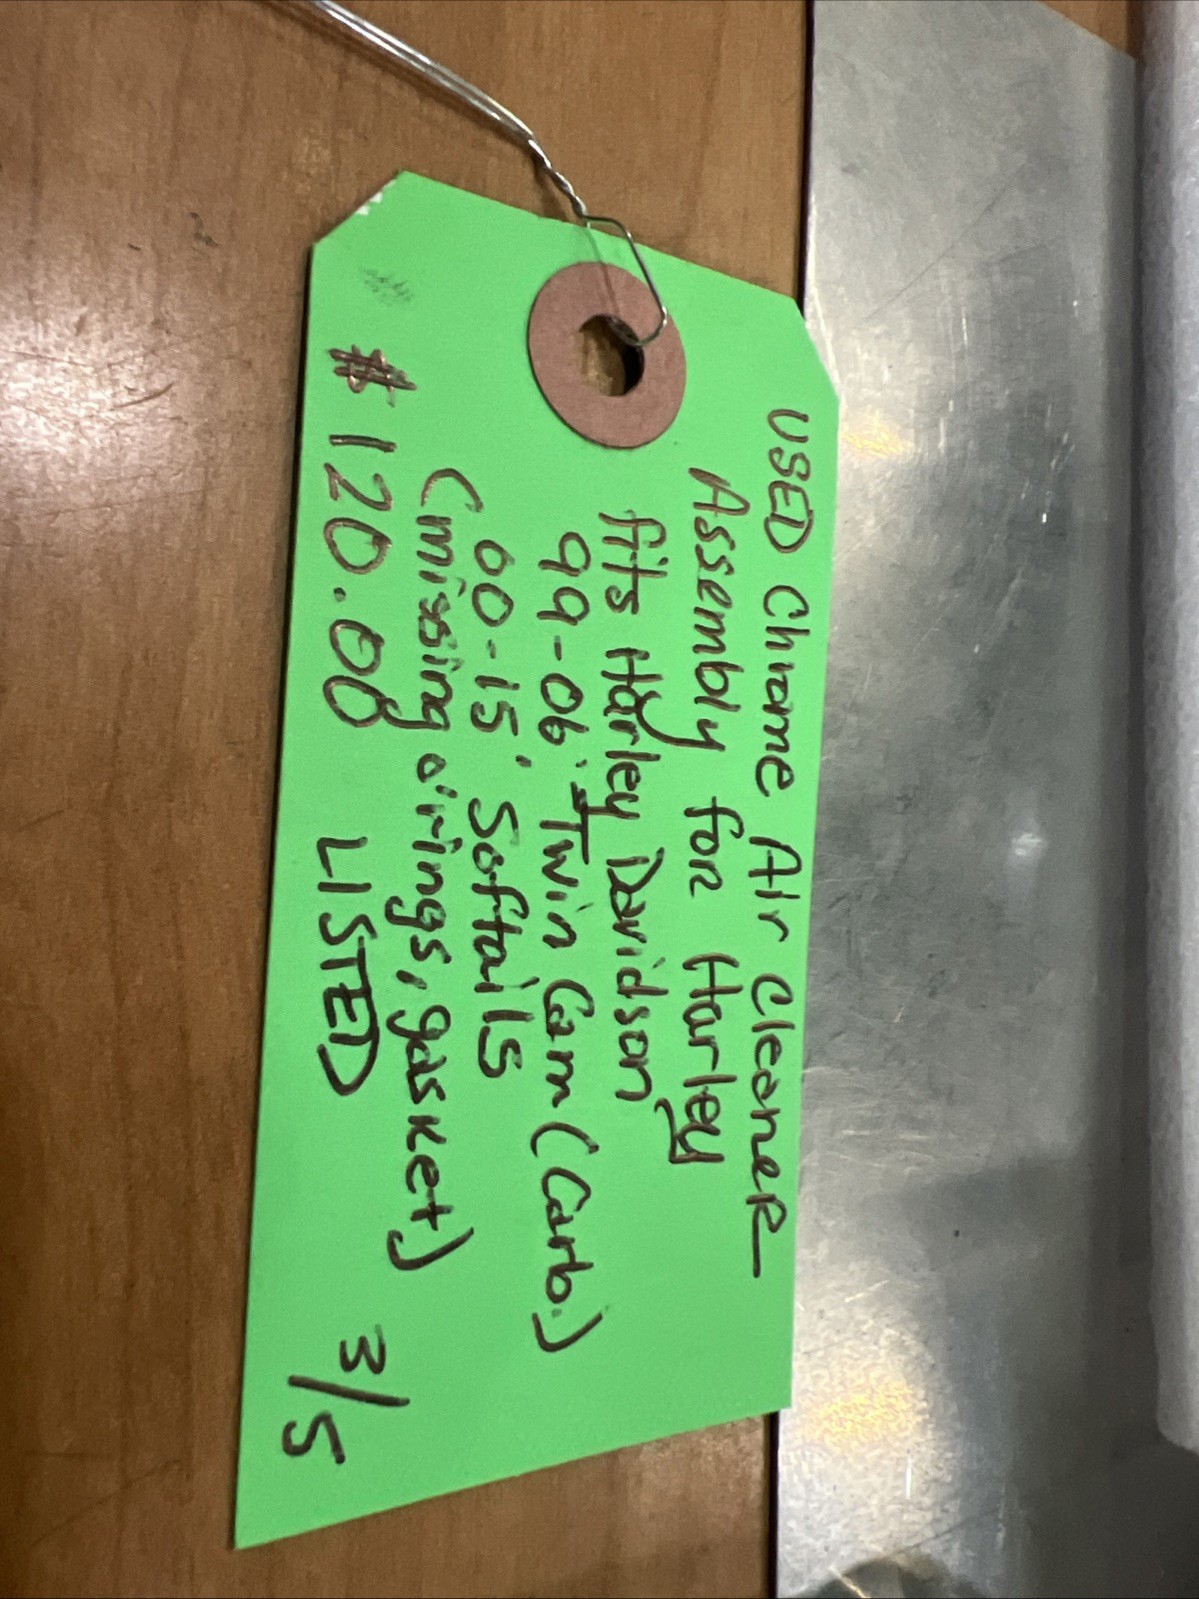 USED Chrome Air Cleaner
Assembly for Harley
fits Harley Davidson
99-06, Twin Cam (Carb.)
00-15, Softails
(missing o'rings, gasket)
$120.00 LISTED 3/5